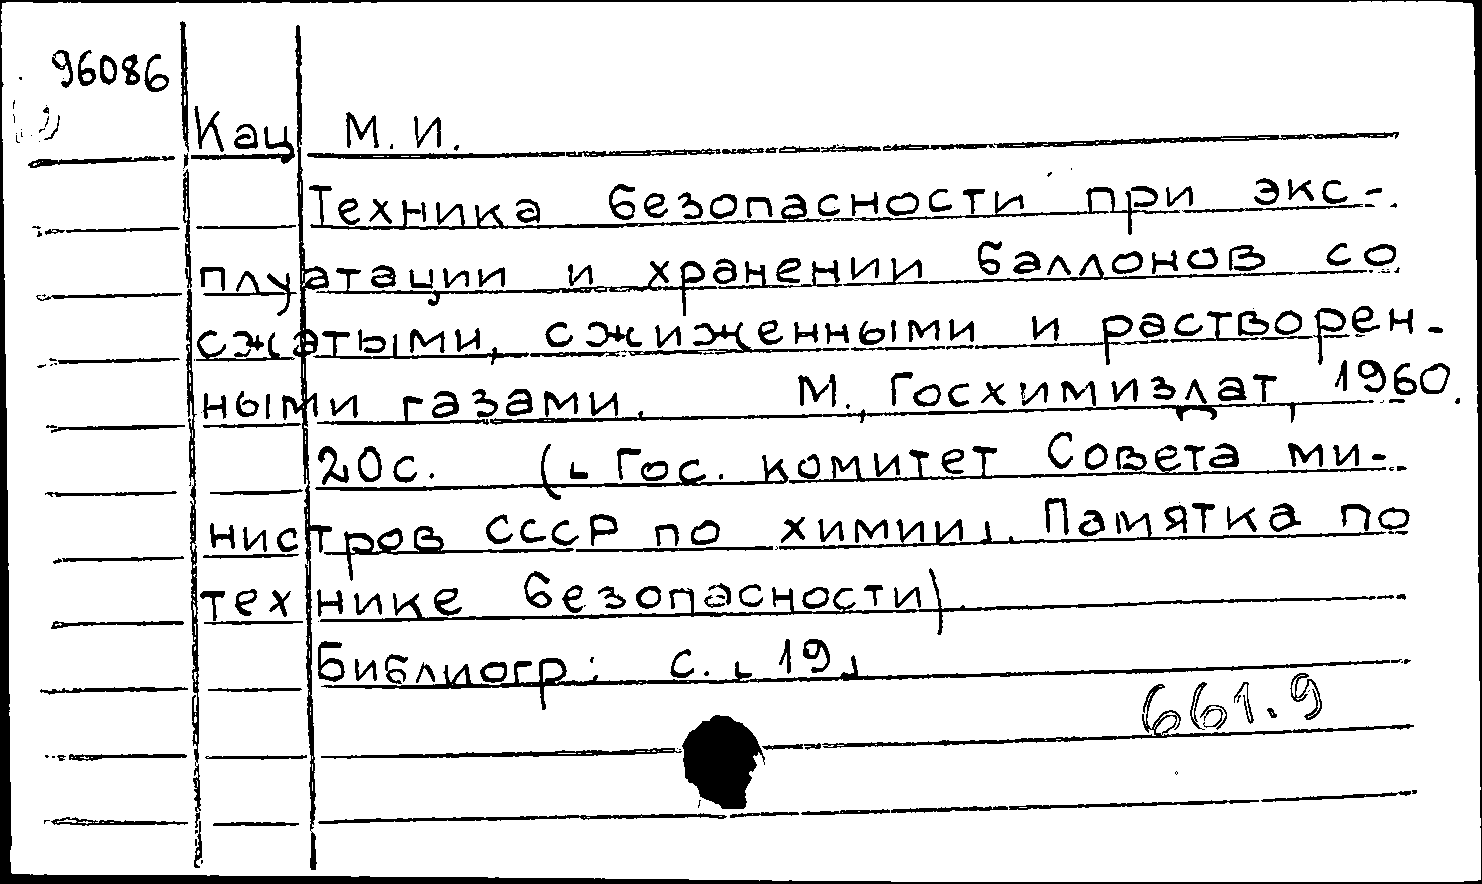 96086
Кац М. И.
Техника безопасности при экс-
плуатации и хранении баллонов со
сжатыми, сжиженными и растворен-
ными газами. М., Госхимиздат, 1960.
20с. (⌞Гос. комитет Совета ми-
нистров СССР по химии⌟. Памятка по
технике безопасности).
Библиогр: с. ⌞19⌟
661.9